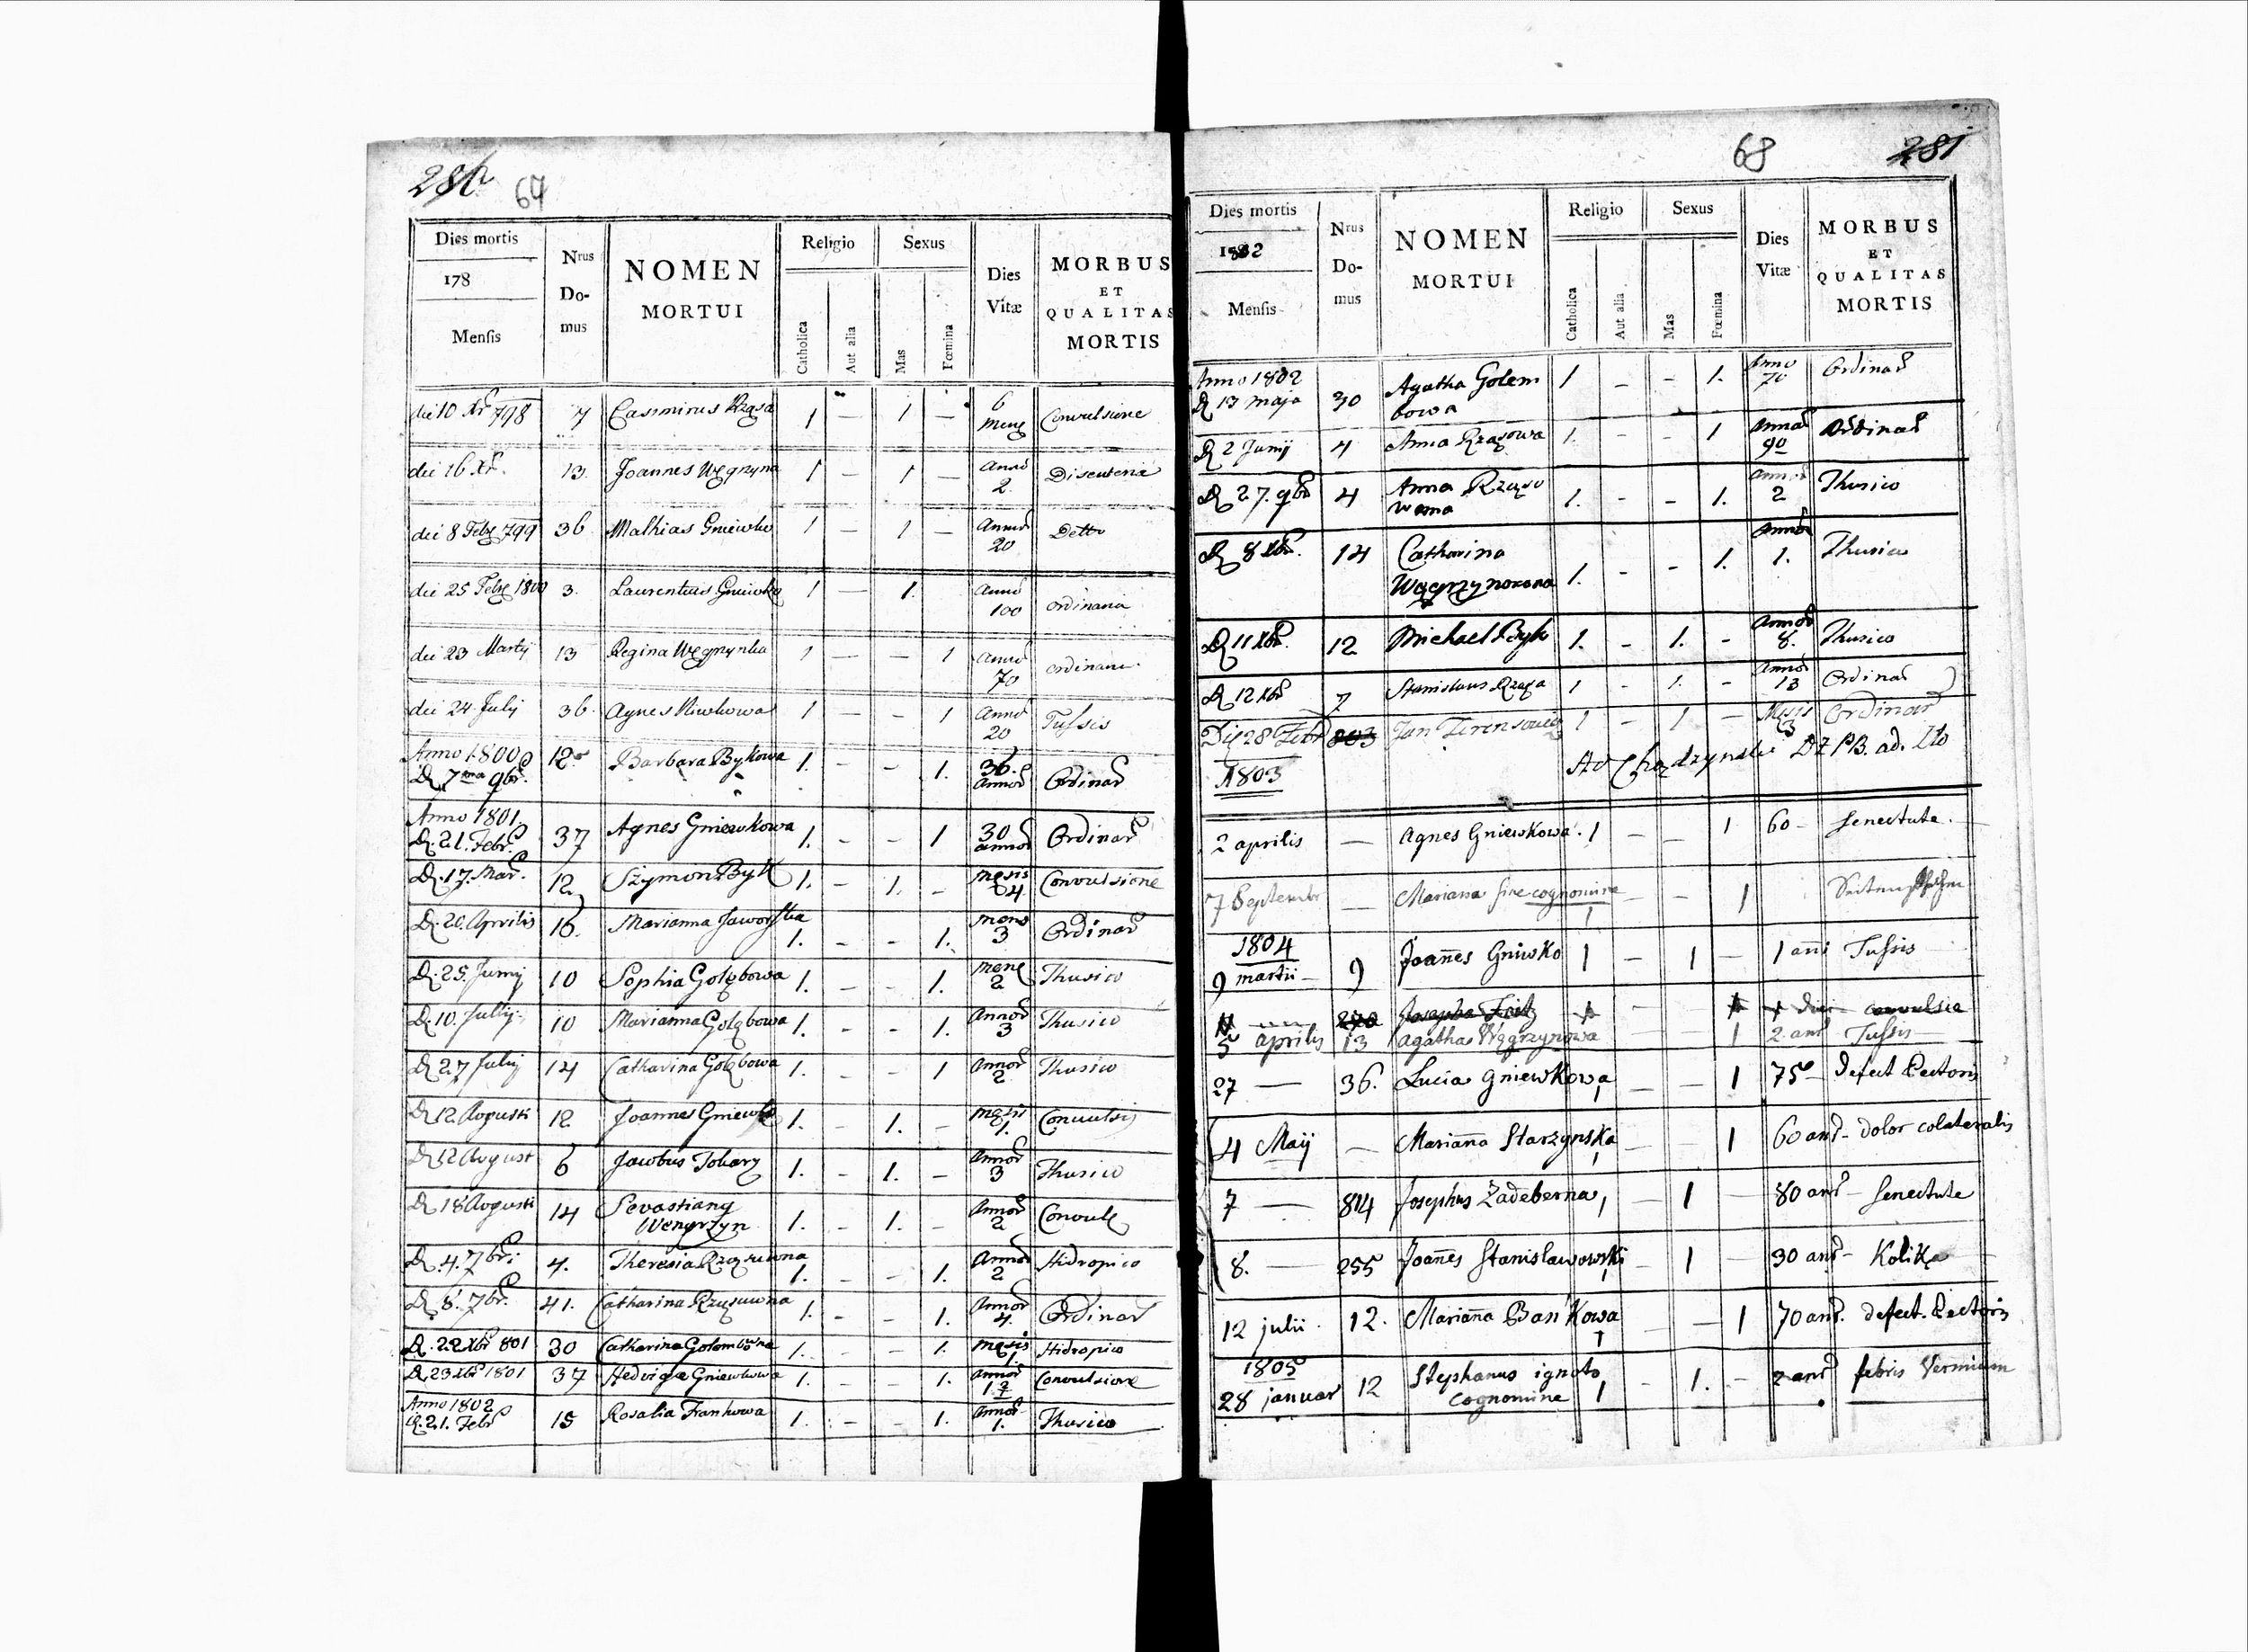 67
Dies mortis
178
Mensis
Nrus Do-
mus
NOMEN
MORTUI
Religio
Catholica
Aut alia
Sexus
Mas
Fœmina
Dies
Vitæ
MORBUS
ET
QUALITAS
MORTIS
die 10 Xbr 798 7 Casimirus Rząsa 1 — 1 — 6 Mens Convulsione
die 16 Xbr. 13. Joannes Węgrzyn 1 — 1 — Anno 2. Disenteria
die 8 Febr 799 36 Mathias Gniewko 1 — 1 — Annor 20 Detto
die 25 Febr 1800 3. Laurentius Gniewko 1 — 1. Anno 100 Ordinaria
die 23 Martij 13 Regina Węgrzynka 1 — — 1 Anno 70 Ordinaria
die 24 July 36. Agnes Niwkowa 1 — — 1 Anno 20 Tussis
Anno 1800
D 7ma 9br. 12 Barbara Bykowa 1. - - 1. 36. Annor Ordinar
Anno 1801.
D. 21. Febr. 37 Agnes Gniewkowa 1. - - 1 30 annor Ordinar
D. 17. Mar. 12 Szymon Byk 1. - 1. - mesis 4 Convulsione
D. 20. Aprilis 16. Marianna Jaworska 1. - - 1. mens 3 Ordinar
D. 25. Junij 10 Sophia Gołębowa 1. - - 1. mens 2 Thusico
D. 10. Jullij. 10 Marianna Gołębowa 1. - - 1. Annor 3 Thusico
D 27 Julij 14 Catharina Gołębowa 1. - - 1 Annor 2 Thusico
D 12. Augusti 12 Joannes Gniewko 1. - 1. - mesis 1. Convulsis
D 12 August 6 Jacobus Tokarz 1. - 1. - Annor 3 Thusico
D 18 Augusti 14 Sevastiang
Wengrzyn 1. - 1. - Annor 2 Convuls
D. 4. 7br: 4. Theresia Rzążuwna 1. - - 1. Annor 2 Hidropico
D. 8. 7br. 41. Catharina Rzążuwna 1. - - 1. Annor 4. Ordinar
D. 22 Xbr 801 30 Catharina Golombowna 1. - - 1. mesis 1. Hidropico
D 23 Xbr 1801 37 Hedvigæ Gniewkowa 1. - - 1. Annor Convulsione
Anno 1802
D. 21. Febr 15 Rosalia Frankowa 1. - - 1. Annor 1. Thusico
68 281
Dies mortis
1802
Mensis
Nrus
Do-
mus
NOMEN
MORTUI
Religio
Catholica
Aut alia
Sexus
Mas
Fœmina
Dies
Vitæ
MORBUS
ET
QUALITAS
MORTIS
Anno 1802
D 13 Maja 30 Agatha Golem
bowa 1 - - 1. Anno 70 Ordinar
D 2 Junij 4 Anna Rząsowa 1. - - 1 Annor 90 Ordinar
D 27. 9br 4 Anna Rząso
wna 1. - - 1. Annor 2 Thusico
D 8 Xbr. 14 Catharina
Węgrzynowna 1. - - 1. Annor 1. Thusico
D 11 Xbr. 12 Michael Byk 1. - 1. - Annor 8. Thusico
D 12 Xbr 7 Stanislaus Rząsa 1 - 1. - Annor 13 Ordinar
Die 28 Febr 803 Jan 1 - 1 - Mesis 3 Ordinar
1803
2 aprilis — Agnes Gniewkowa. 1 — — 1 60 - Senectute.
7 Septembr — Marianna sine cognomine 1 — — 1
1804
9 martii 9 Joañes Gniwko 1 — 1 — 1 ani Tussis
270 convulsia
5 aprilis 13 Agatha Węgrzynowa 1 2 anr Tussis
27 — 36. Lucia Gniewkowa 1 — — 1 75 - defect Pectoris
4 Maij — Mariana Starzynska 1 — — 1 60 anr - dolor colateralis
7 — 814 Josephus Zadeberna 1 — 1 — 80 anr - Senectute
8. — 255 Joañes Stanislawowski 1 — 1 — 30 anr - Kolika
12 julii. 12. Mariana Bańkowa 1 — — 1 70 anr. defect. Pectoris
1805
28 januar 12 Stephanus ignoto
cognomine 1 - 1. - 2 anr febris Vermium